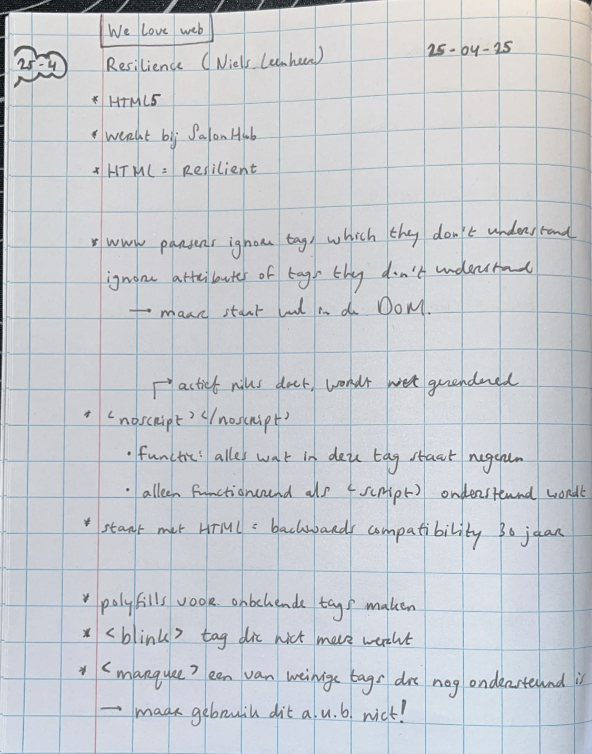 We Love web
25-4
Resilience (Niels Leenheer)
25-04-25
* HTML5
* werkt bij SalonHub
* HTML = Resilient
* www parsers ignore tags which they don't understand
ignore attributes of tags they don't understand
→ maar staat wel in de DOM.
↱ actief niks doet, wordt wel gerendered
* <noscript></noscript>
• functie: alles wat in deze tag staat negeren
• alleen functionerend als <script> ondersteund wordt
* start met HTML = backwards compatibility 30 jaar
* polyfills voor onbekende tags maken
* <blink> tag die niet meer werkt
* <marquee> een van weinige tags die nog ondersteund is
→ maar gebruik dit a.u.b. niet!